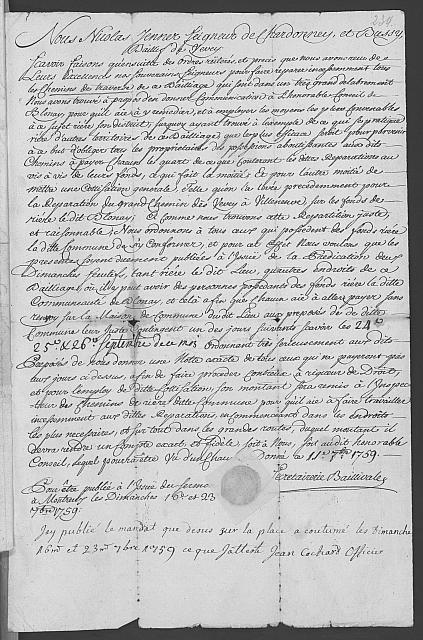 234
Nous Nicolas Jenner Seigneur de Chardonney, et Bussy,
Baillif de Vevey
Scavoir faisons qu'ensuitte des ordres réitérés, et précis que nous avons reçu de
Leurs Excellences nos Souverains Seigneurs pour faire réparer incessamment tous
les Chemins de traverse de ce Bailliage qui sont dans un très grand délabrement
Nous avons trouvé à propos d'en donner Communication à L'honorable Conseil de
Blonay pour qu'il aie à y procéder, et à employer les moyens les plus convenables
à ce Sujet rière son district; surquoy ayant trouvé à l'exemple de ce qui se pratique
rière d'autres territoires de ce Bailliage que le plus efficace seroit pour parvenir
à ce but d'obliger tous les propriétaires des possessions aboutissantes aux dits
Chemins à payer chacun le quart de ce que couteront les dittes Réparations au
vis à vis de leurs fonds, ce qui fait la moitié; Et pour l'autre moitié de
mettre une Cottisation generale, Telle qu'on la levée précédemment pour
la Réparation du grand Chemin dès Vevey à Villeneuve, sur les fonds de
rière le dit Blonay; Et comme nous trouvons cette Répartition juste,
et raisonnable; Nous ordonnons à tous ceux qui possèdent des fonds rière
la ditte Commune de s'y conformer, et pour cet Effet Nous voulons que les
presentes soyent duement publiées à l'Issüe de la Prédication deux
Dimanches sécutifs, tant rière le dit Lieu, qu'autres endroits de ce
Bailliage, où il peut avoir des personnes possedants des fonds rière la ditte
Communauté de Blonay, et cela afin que chacun aie à aller payer sans
renvoy sur la Maison de Commune du dit Lieu aux préposés de de ditte
Commune leur juste Contingent un des jours suivants scavoir les 24e
25e & 26e Septembre de ce mois ordonnant très serieusement aux dits
Préposés de nous donner une Notte exacte de tous ceux qui ne payeront pas
aux jours ci dessus, afin de faire procéder contr'eux à rigueur de Droit,
et pour l'employ de ditte Cottisation, son montant sera remis à l'Inspec-
teur des Chemins de rière ditte Commune pour qu'il aie à faire travailler
incessamment aux dittes Réparations, en commençant dans les endroits
les plus necessaires, et sur tout dans les grandes routes, duquel montant il
devra rendre un compte exact, et fidèle soit à Nous, soit audit honorable
Conseil, lequel pourra être Vû d'un chacun. Donné ce 11e 7bre 1759.
Secretairerie Baillivale
Pour être publié à l'Issüe du sermon
à Montreux les Dimanches 16e et 23
7bre 1759.
Jey publié le mandat que desus sur la place a coutumé les Dimanche
16me et 23me 7bre 1759 ce que J'atteste Jean Cochard Officier